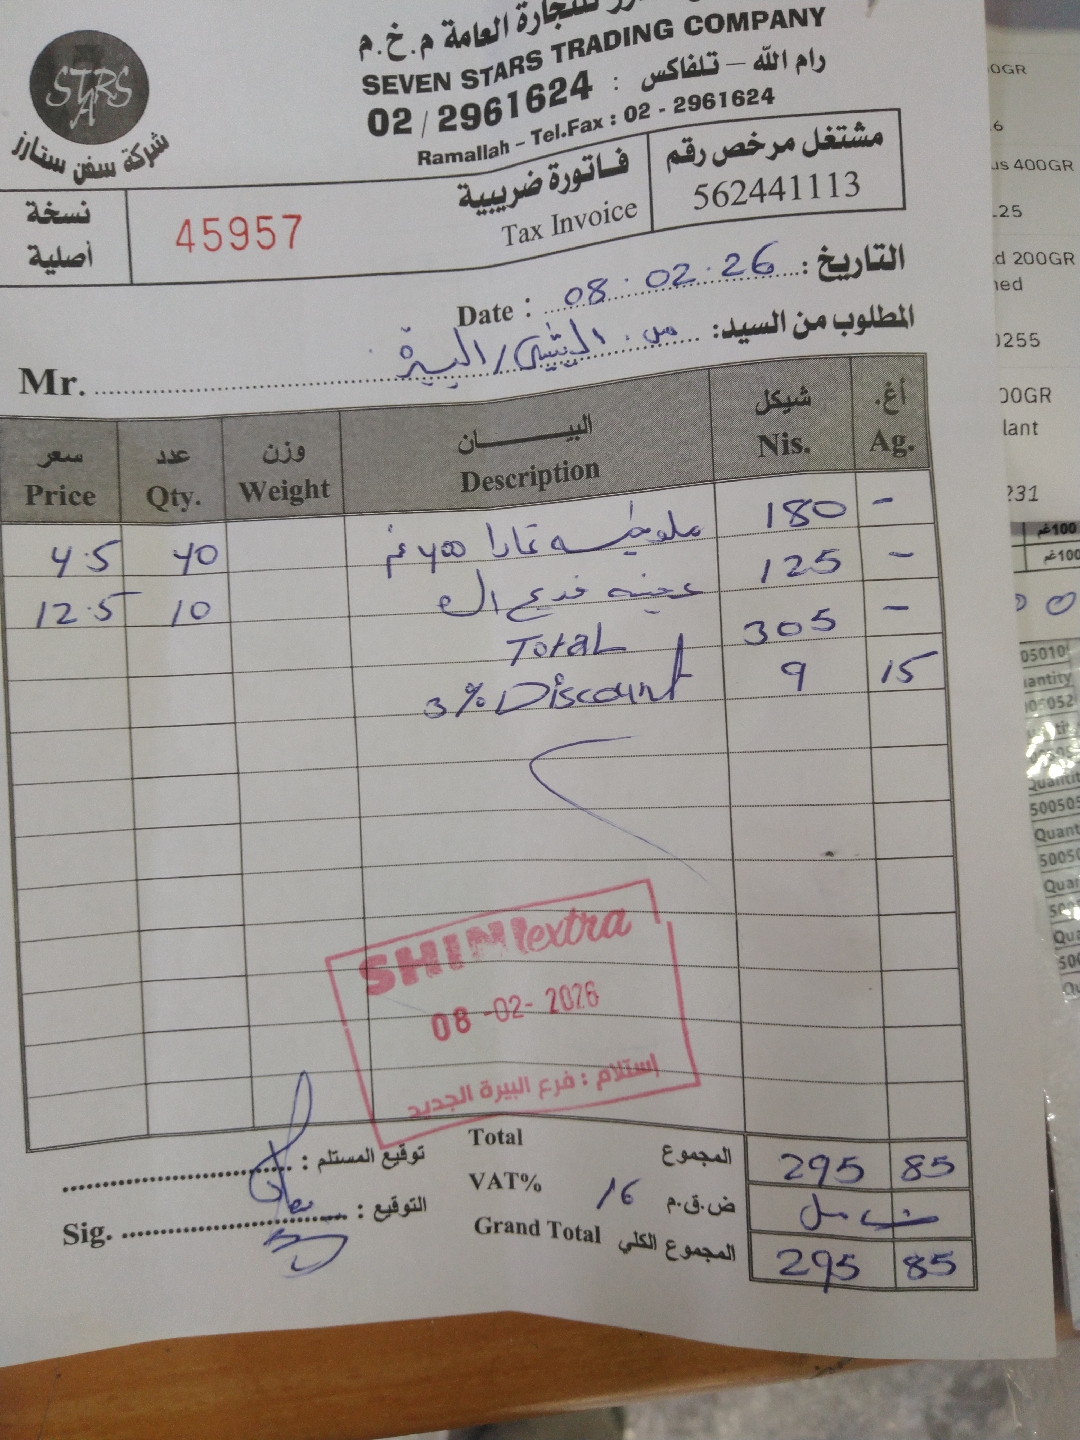 للتجارة العامة م.خ.م
SEVEN STARS TRADING COMPANY
رام الله – تلفاكس : 02 / 2961624
Ramallah – Tel.Fax : 02 - 2961624
STARS
شركة سفن ستارز
مشتغل مرخص رقم
562441113
فاتورة ضريبية
Tax Invoice
45957
نسخة
أصلية
التاريخ: 08.02.26 Date :
المطلوب من السيد: البيرة
Mr.
سعر عدد وزن البيـــــان شيكل أغ.
Price Qty. Weight Description Nis. Ag.
4.5 40 400 غم 180 -
12.5 10 125 -
Total 305 -
3% Discount 9 15
SHINI extra
08 -02- 2026
إستلام : فرع البيرة الجديد
توقيع المستلم :
التوقيع :
Sig.
Total المجموع 295 85
VAT% 16 ض.ق.م شامل
Grand Total المجموع الكلي 295 85
0GR
us 400GR
.25
d 200GR
ned
0255
00GR
lant
231
100غم
100غم
05010
antity
05052
Quantity
500505
Quant
5005
Quan